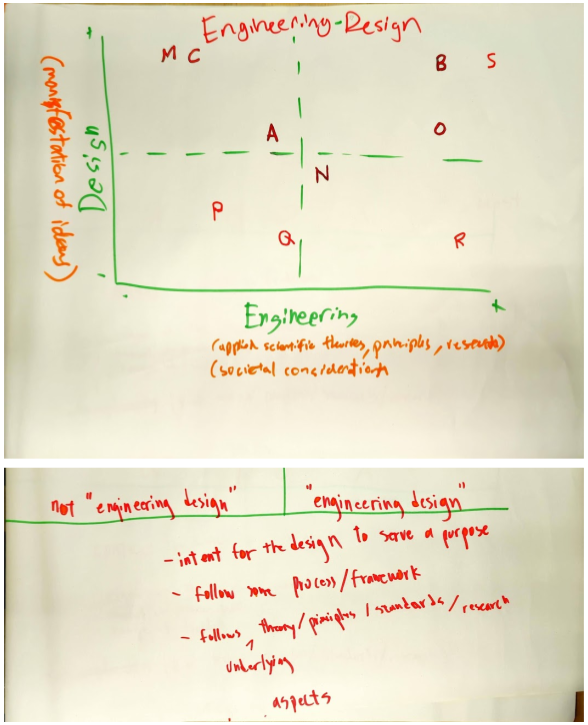 Engineering-Design
+
M C
B S
A
O
N
P
Q
R
Design
(manifestation of ideas)
-
-
+
Engineering
(applied scientific theories, principles, research)
(societal considerations
not "engineering design"
"engineering design"
- intent for the design to serve a purpose
- follow some process/framework
- follows theory/principles/standards/research
underlying
aspects